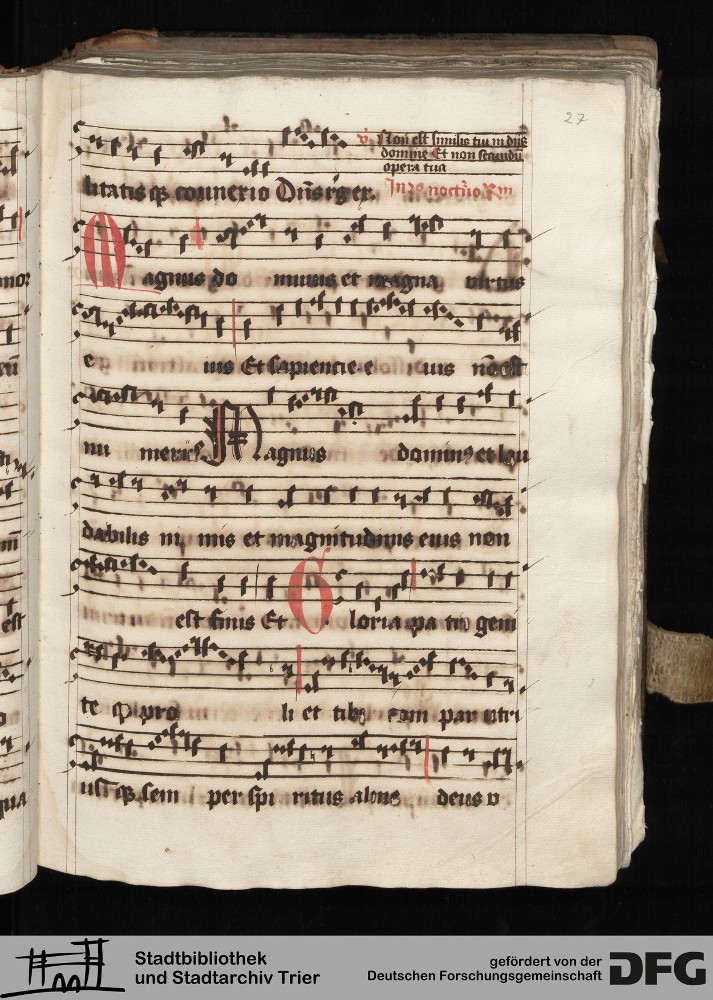 27
℣ Non est similis tui in diis
domine Et non secundū
opera tua
litatis qz connexio Dn̄s r̄ger.
In 2o noctūo Rm
Magnus do minus et magna virtus
e ius Et sapiencie e ius nō est
nu merus Magnus dominꝰ et lau
dabilis ni mis et magnitudinis eius non
est finis Et Gloria pa tri geni
te qz pro li et tibi com par utri
usqz sem per spi ritus alme deus u
Stadtbibliothek
und Stadtarchiv Trier
gefördert von der
Deutschen Forschungsgemeinschaft
DFG